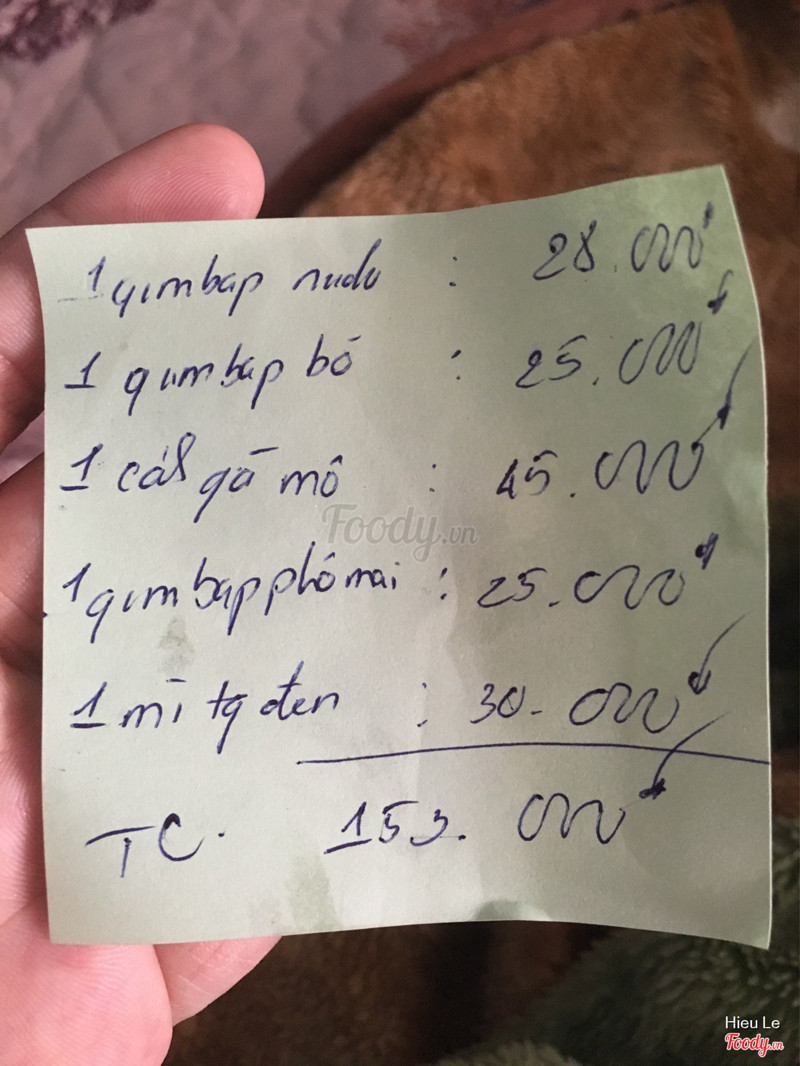 1 gimbap nudu : 28.000đ
1 gimbap bò : 25.000đ
1 cơm gà mô : 45.000đ
Foody.vn
1 gimbap phô mai : 25.000đ
1 mì tg đen : 30.000đ
TC. 153.000đ
Hieu Le
Foody.vn